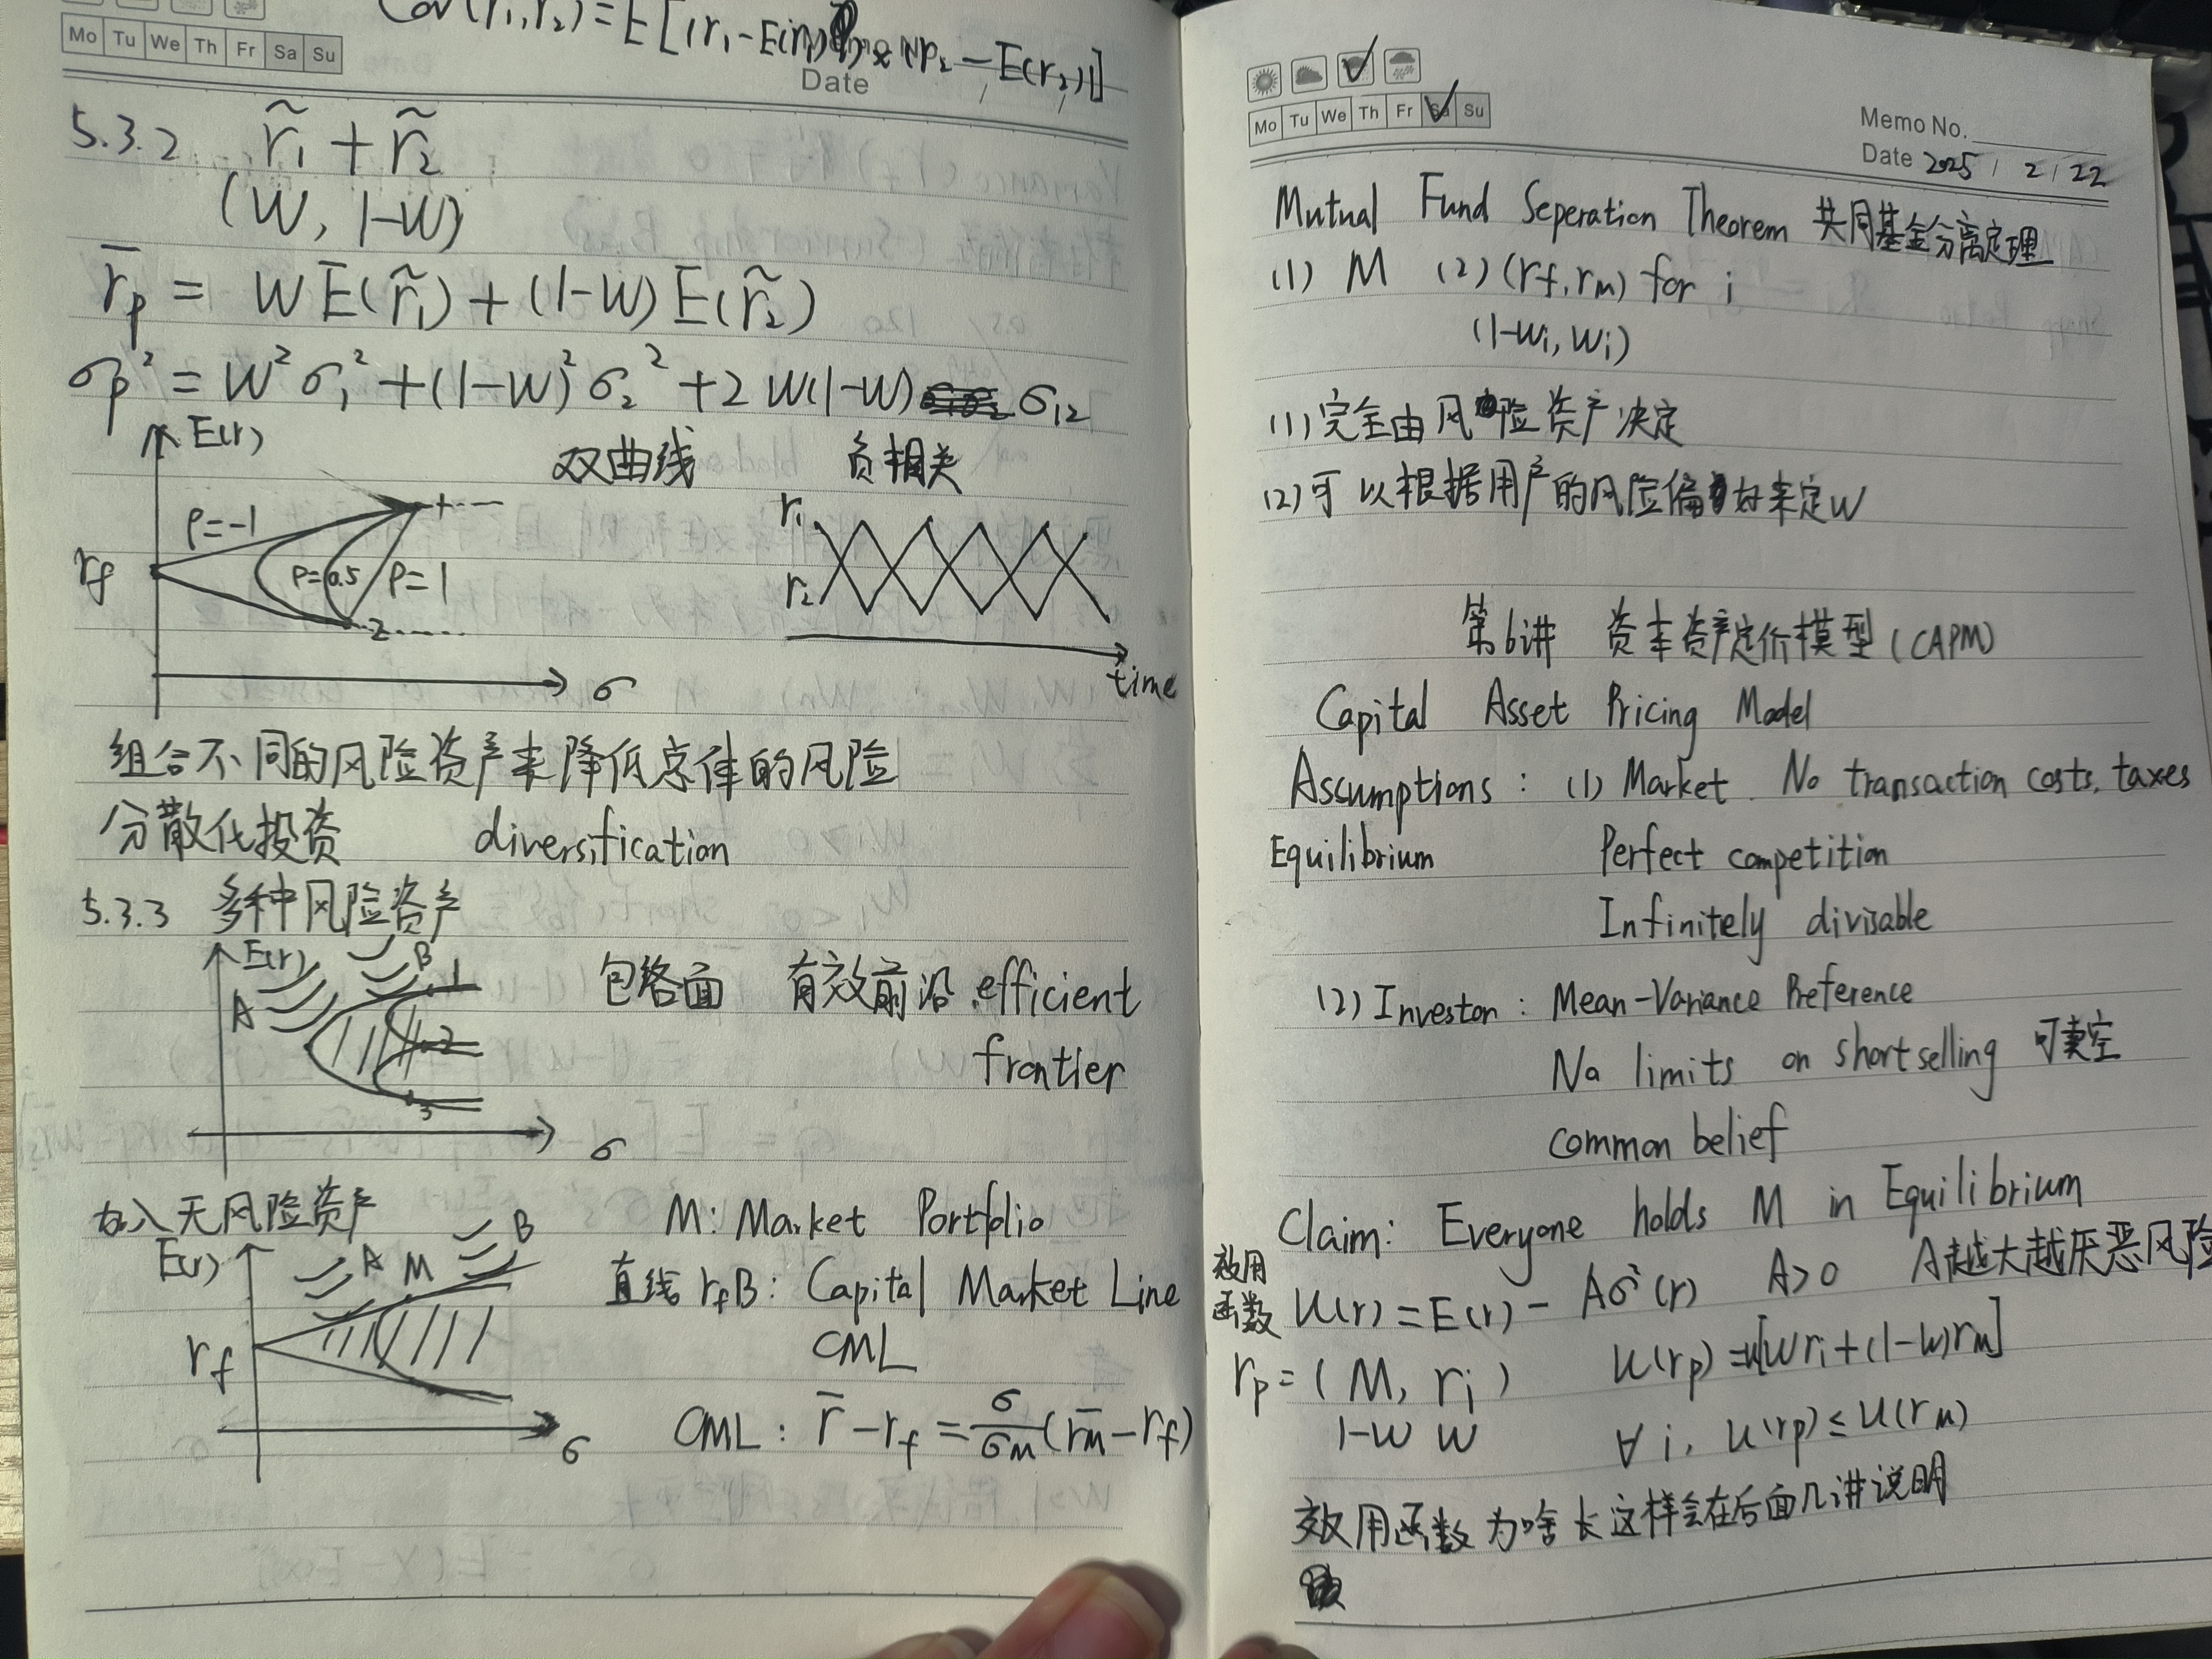 Cov(r₁,r₂)=E[(r₁-E(r₁))×(r₂-E(r₂))]
Mo Tu We Th Fr Sa Su
Date
5.3.2 r̃₁+r̃₂
(W, 1-W)
r̄p = WE(r̃₁)+(1-W)E(r̃₂)
σp²=W²σ₁²+(1-W)²σ₂²+2W(1-W)σ₁₂
E(r) 双曲线 负相关
ρ=-1 1 r₁
rf ρ=0.5 ρ=1 r₂
2
σ time
组合不同的风险资产来降低总体的风险
分散化投资 diversification
5.3.3 多种风险资产
E(r) B 1 包络面 有效前沿 efficient
A 2 frontier
3
σ
加入无风险资产 M: Market Portfolio
E(r) A M B 直线rfB: Capital Market Line
rf CML
σ CML: r̄-rf=σ/σM(r̄M-rf)
Mo Tu We Th Fr Sa Su
Memo No.
Date 2025 / 2 / 22
Mutual Fund Seperation Theorem 共同基金分离定理
(1) M (2)(rf,rm) for i
(1-Wi, Wi)
(1)完全由风险资产决定
(2)可以根据用户的风险偏好来定W
第6讲 资本资产定价模型(CAPM)
Capital Asset Pricing Model
Assumptions: (1) Market. No transaction costs, taxes
Equilibrium Perfect competition
Infinitely divisable
(2) Investor: Mean-Variance Preference
No limits on short selling 可卖空
common belief
Claim: Everyone holds M in Equilibrium
效用函数 U(r)=E(r)-Aσ²(r) A>0 A越大越厌恶风险
rp=(M, ri) U(rp)=u[Wri+(1-W)rm]
1-W W ∀i, u(rp)≤u(rM)
效用函数为啥长这样会在后面几讲说明